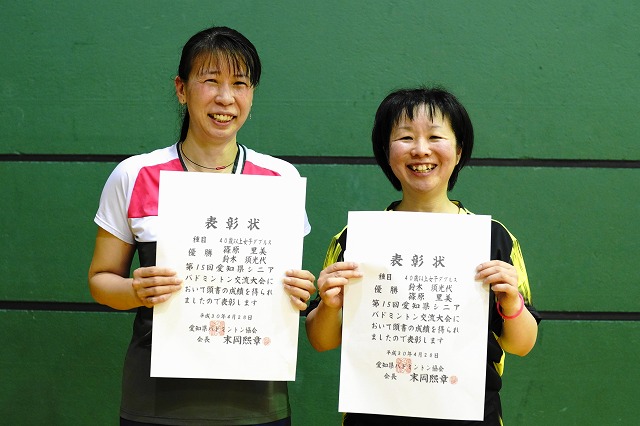 表彰状
種目 40歳以上女子ダブルス
優勝 篠原 里美
鈴木 須光代
第15回愛知県シニア
バドミントン交流大会に
おいて頭書の成績を得られ
ましたので表彰します
平成30年4月28日
愛知県バドミントン協会
会長 末岡熙章
表彰状
種目 40歳以上女子ダブルス
優勝 鈴木 須光代
篠原 里美
第15回愛知県シニア
バドミントン交流大会に
おいて頭書の成績を得られ
ましたので表彰します
平成30年4月28日
愛知県バドミントン協会
会長 末岡熙章